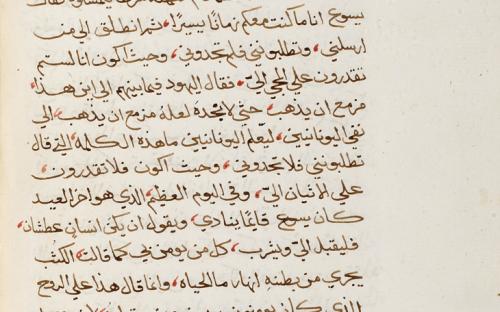 يسوع انا ماكنت معكم زمانًا يسيرًا، ثم انطلق الي من
ارسلني، وتطلبونني فلم تجدوني، وحيث اكون انا لستم
تقدرون علي المجي الي، فقال اليهود فيما بينهم الي اين هذا
مزمع ان يذهب، حتي لا نجده لعله مزمع ان يذهب الي
نفي اليونانيين، ليعلم اليونانيين ما هذه الكلمة التي قال
تطلبونني فلا تجدوني، وحيث اكون فلا تقدرون
علي الاتيان الي، وفي اليوم العظيم الذي هو اخر العيد
كان يسوع قايمًا ينادي، ويقول ان يكن انساني عطشان،
فليقبل الي ويشرب، كل من يومن بي كما قالت الكتب
يجري من بطنه انهار ما الحياه، وانما قال هذا علي الروح
الذي كان